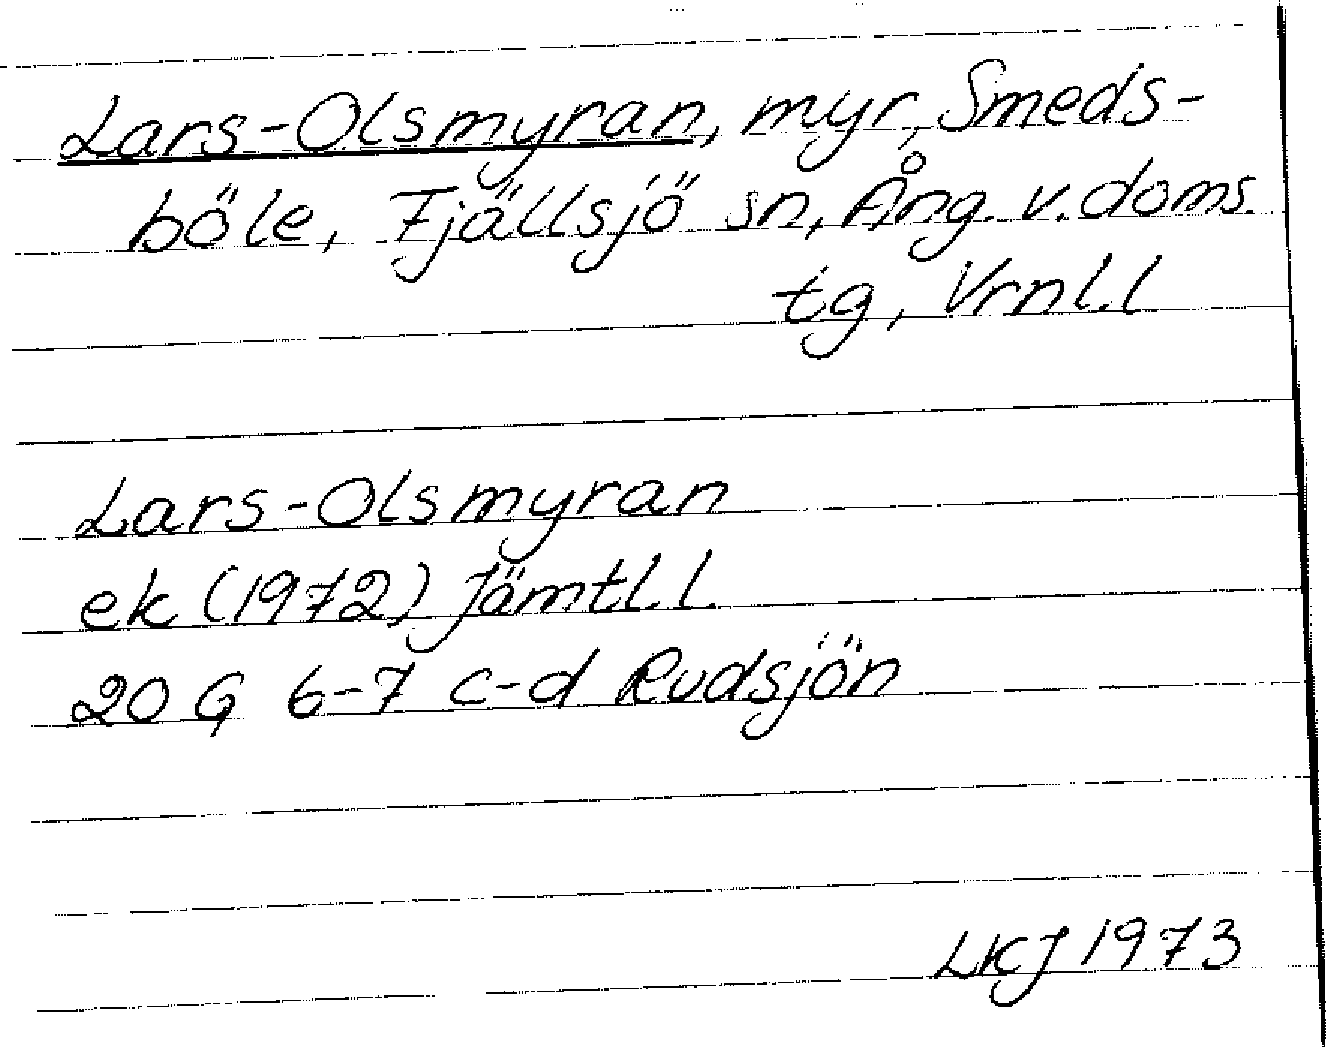 Lars-Olsmyran, myr, Smeds-
böle, Fjällsjö sn, Ång. v. doms.
tg, Vrnl.l
Lars-Olsmyran
ek (1972) Jämtl.l.
20 G 6-7 c-d Rudsjön
LKJ 1973